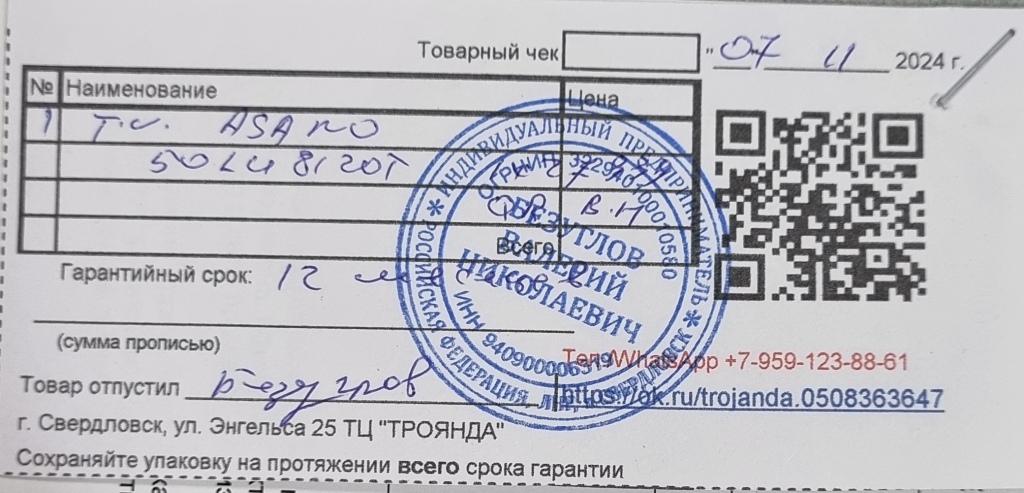 Товарный чек "07" 11 2024 г.
№ Наименование Цена
1 T.V. ASANO
50LU8120T
Всего
Гарантийный срок: 12 месяцев
(сумма прописью)
Товар отпустил Безуглов
г. Свердловск, ул. Энгельса 25 ТЦ "ТРОЯНДА"
Сохраняйте упаковку на протяжении всего срока гарантии
Тел/WhatsApp +7-959-123-88-61
https://ok.ru/trojanda.0508363647
* ИНДИВИДУАЛЬНЫЙ ПРЕДПРИНИМАТЕЛЬ *
РОССИЙСКАЯ ФЕДЕРАЦИЯ, СВЕРДЛОВСК
ОГРНИП
БЕЗУГЛОВ
ВАЛЕРИЙ
НИКОЛАЕВИЧ
ИНН 940900006319